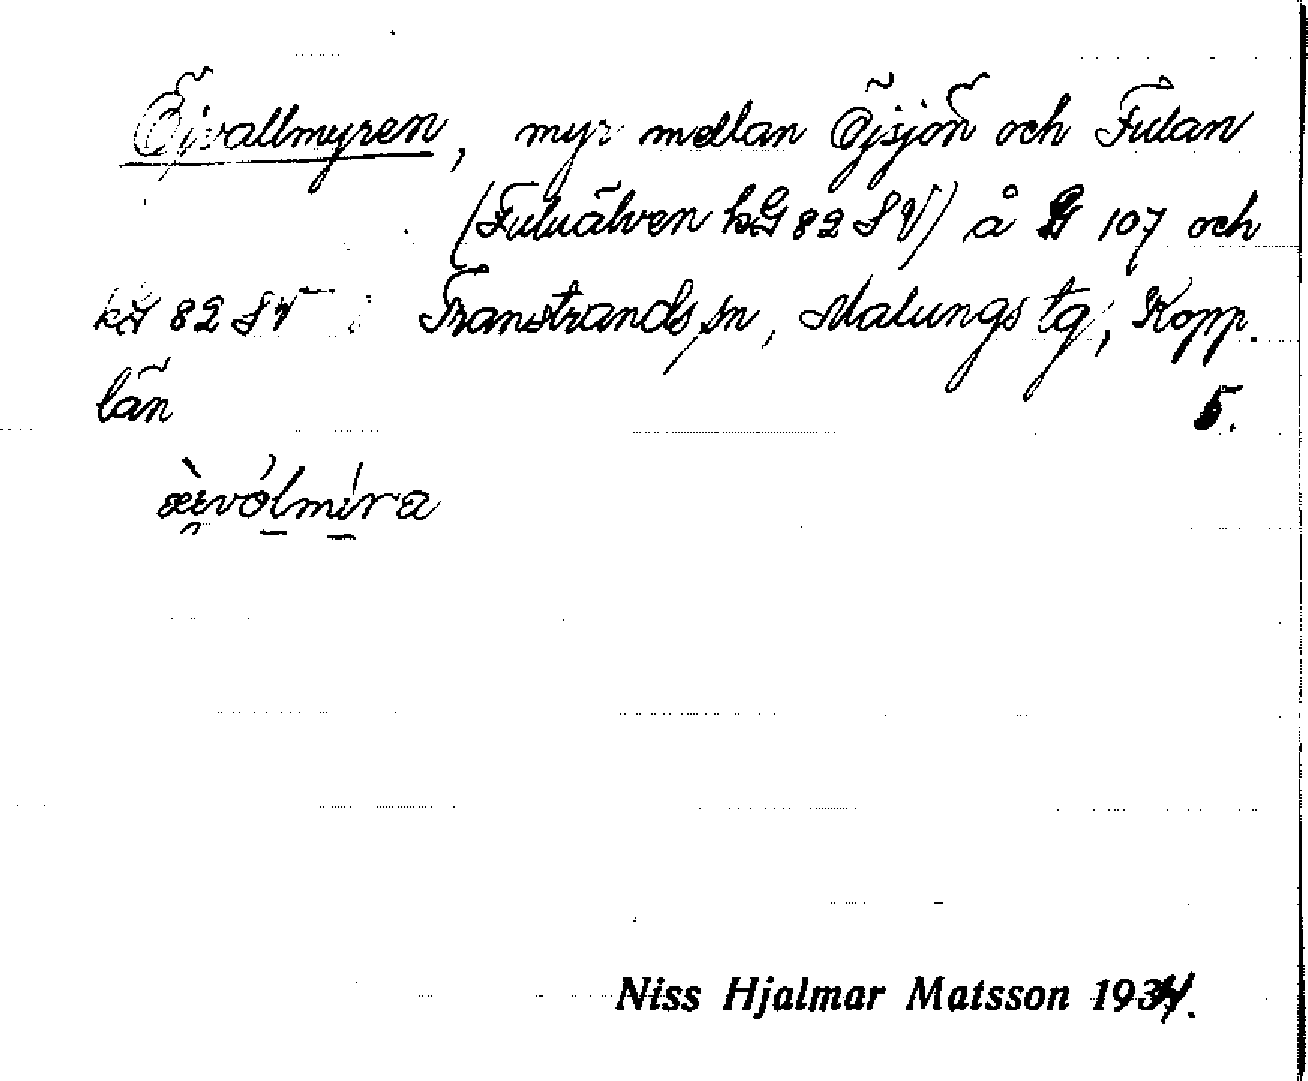 Öjvallmyren, myr mellan Öjsjön och Fulan
(Fuluälven kG 82 SV) å G 107 och
kG 82 SV i Transtrands sn, Malungs tg, Kopp.
län 5.
Niss Hjalmar Matsson 1934.